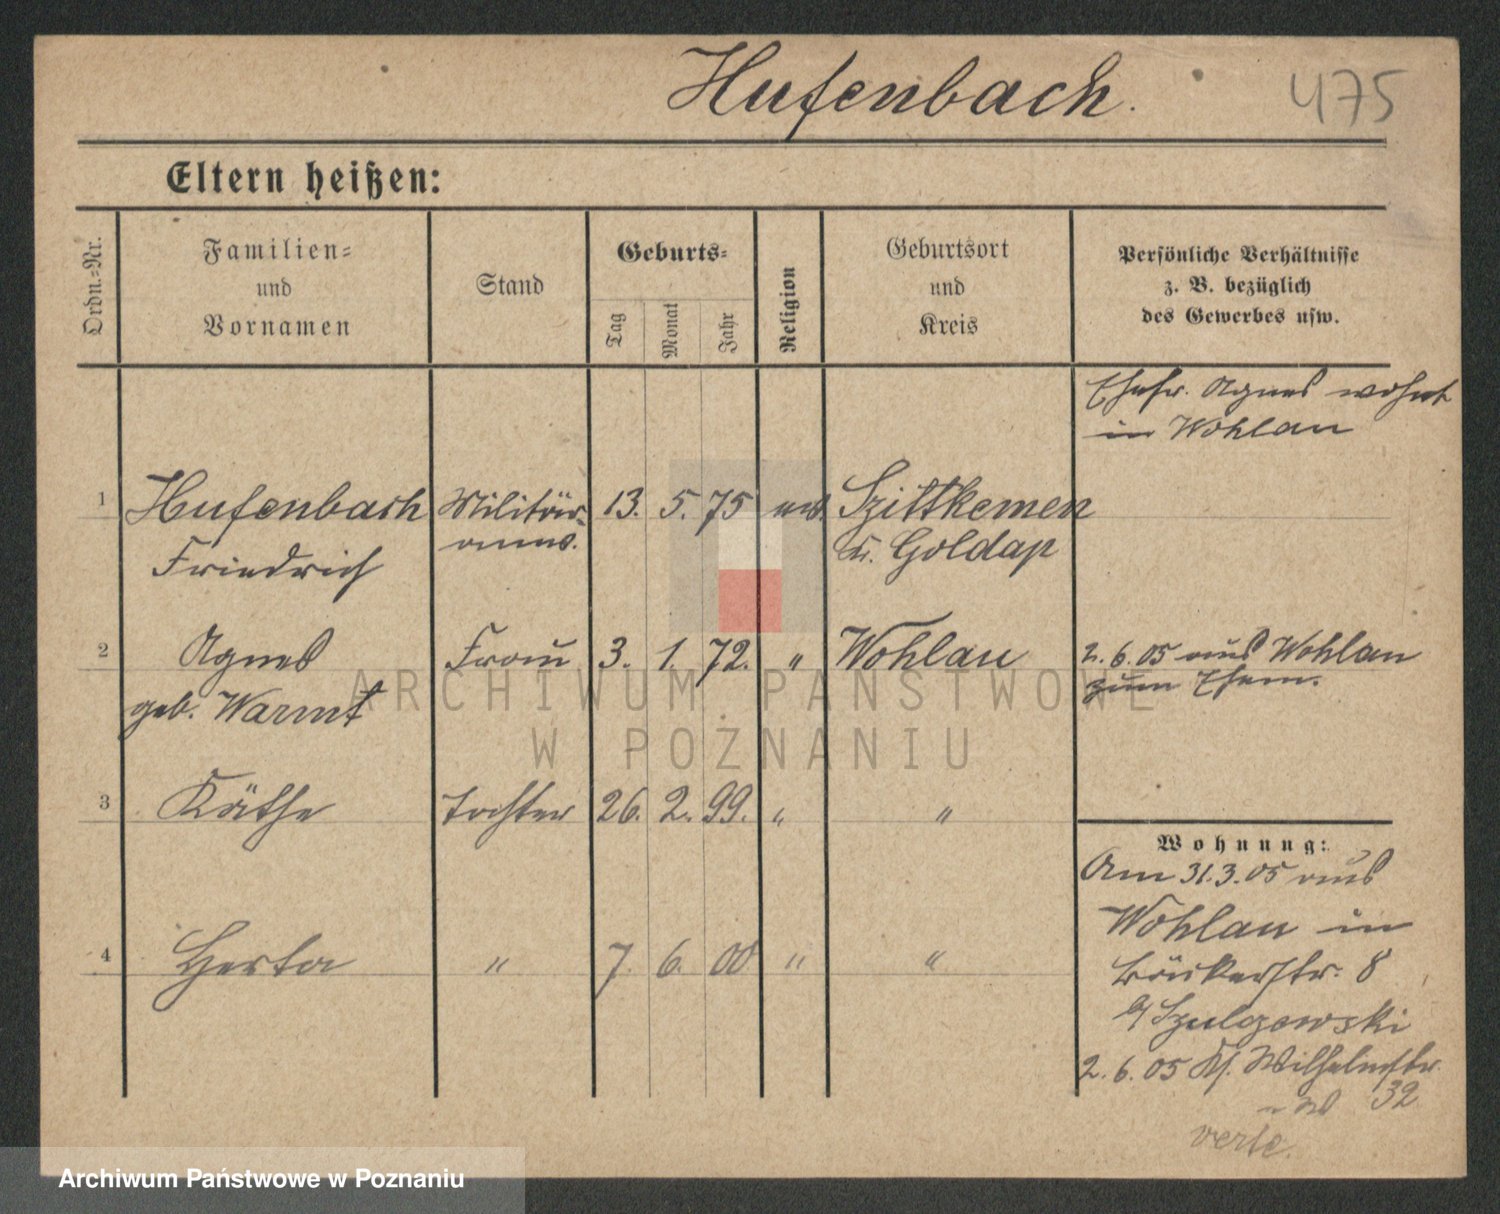 Hufenbach.
475
Eltern heißen:
Ordn.-Nr.
Familien-
und
Vornamen
Stand
Geburts-
Tag
Monat
Jahr
Religion
Geburtsort
und
Kreis
Persönliche Verhältnisse
z. B. bezüglich
des Gewerbes usw.
Ehefr. Agnes wohnt
in Wohlau
1 Hufenbach Militär- 13. 5. 75 Szittkemen
Friedrich Kr. Goldap
2 Agnes Frau 3. 1. 72. " Wohlau 2. 6. 05 aus Wohlau
geb. Warmt zum Ehem.
3 Käthe Tochter 26. 2. 99. " "
4 Herta " 7. 6. 00 " "
Wohnung:
Am 31.3.05 aus
Wohlau in
Bäckerstr. 8
b/ Szulczewski
2. 6. 05 Wilhelmstr.
32
verte.
ARCHIWUM PAŃSTWOWE
W POZNANIU
Archiwum Państwowe w Poznaniu